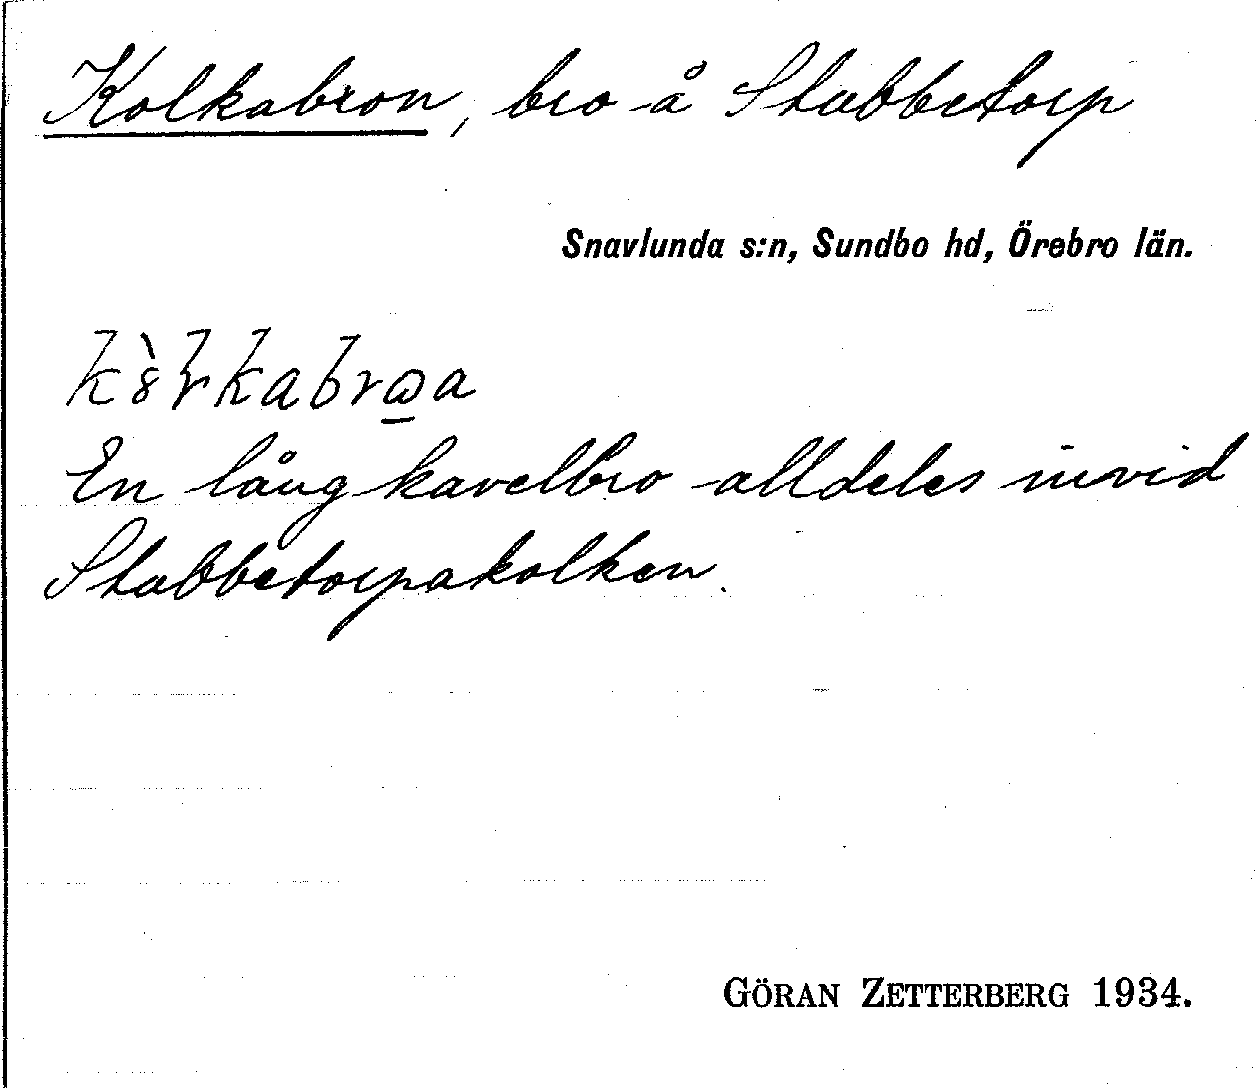 Kolkabron, bro å Stubbetorp
Snavlunda s:n, Sundbo hd, Örebro län.
En lång kavelbro alldeles invid
Stubbetorpakolken.
GÖRAN ZETTERBERG 1934.